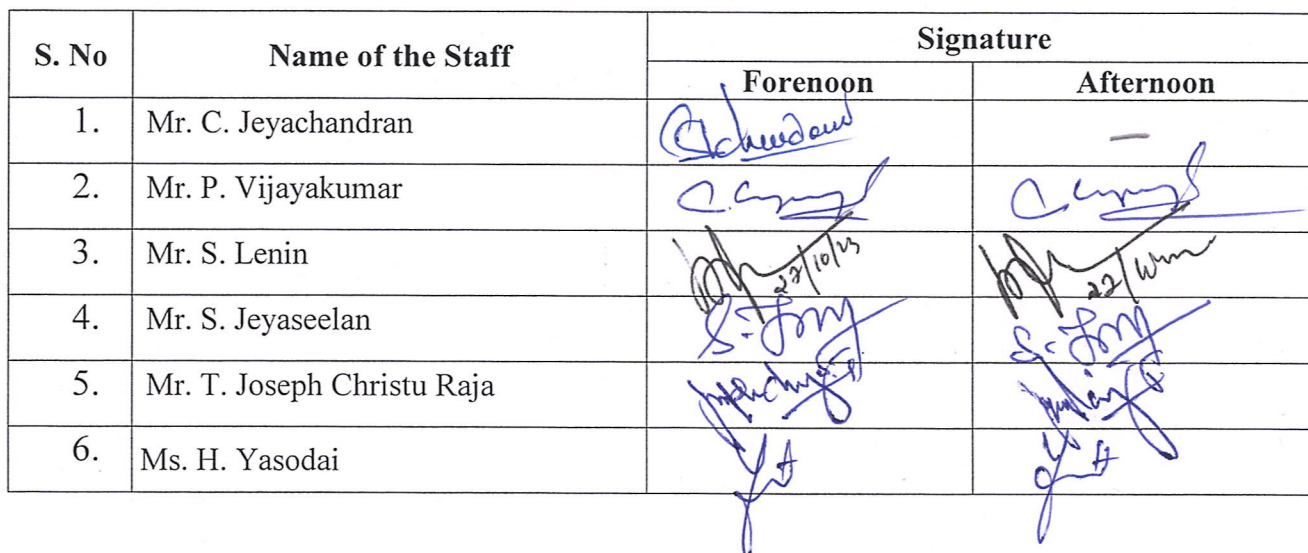 S. No Name of the Staff Signature
Forenoon Afternoon
1. Mr. C. Jeyachandran –
2. Mr. P. Vijayakumar
3. Mr. S. Lenin 22/10/23 22/
4. Mr. S. Jeyaseelan
5. Mr. T. Joseph Christu Raja
6. Ms. H. Yasodai